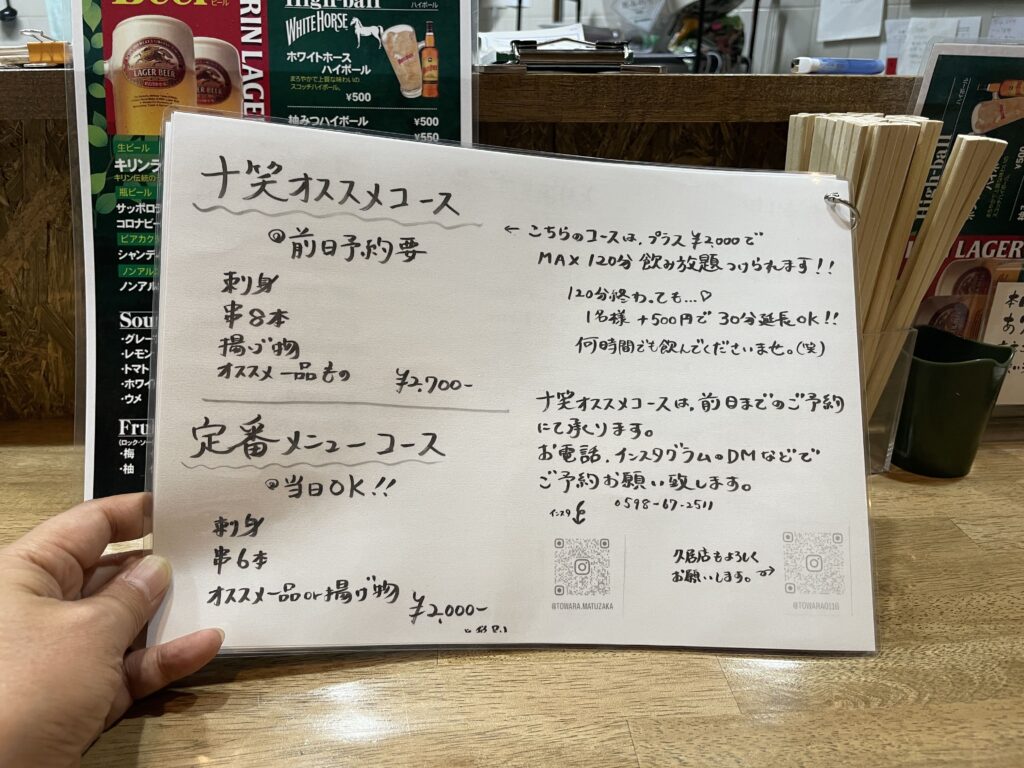 Beer ビール
KIRIN LAGER
LAGER BEER
High-ball ハイボール
WHITE HORSE
ホワイトホース
ハイボール
まろやかで上質な味わいの
スコッチハイボール。
¥500
柚みつハイボール ¥500
¥550
生ビール
キリンラ
キリン伝統の
瓶ビール
サッポロ
コロナビー
ビアカク
シャンデ
ノンアル
ノンアル
Sou
・グレー
・レモン
・トマト
・ホワイ
・ウメ
Fru
(ロック・ソー
・梅
・柚
十笑オススメコース
◎前日予約要
刺身
串8本
揚げ物
オススメ一品もの ¥2,700-
定番メニューコース
◎当日OK!!
刺身
串6本
オススメ一品or揚げ物
¥2,000-
← こちらのコースは、プラス¥2,000で
MAX 120分 飲み放題つけられます!!
120分終わっても…♡
1名様 +500円で 30分延長OK!!
何時間でも飲んでくださいませ。(笑)
十笑オススメコースは、前日までのご予約
にて承ります。
お電話、インスタグラムのDMなどで
ご予約お願い致します。
0598-67-2511
インスタ
@TOWARA.MATUZAKA
久居店もよろしく
お願いします。
@TOWARA0116
High-ball
ハイボール
LAGER